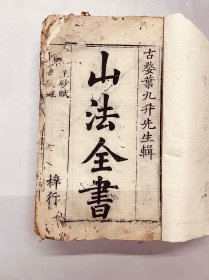 古婺葉九升先生輯
山法全書
平砂賦
梓行